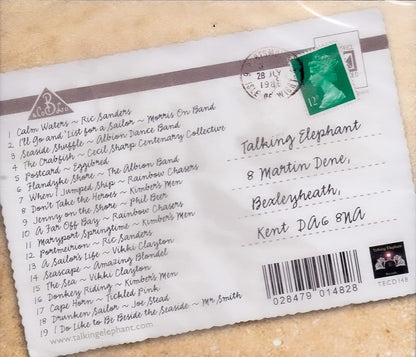 1 Calm Waters ~ Ric Sanders
2 I'll Go and 'List for a Sailor ~ Morris On Band
3 Seaside Shuffle ~ Albion Dance Band
4 The Crabfish ~ Cecil Sharp Centenary Collective
5 Postcard ~ Eggibred
6 Flandyke Shore ~ The Albion Band
7 When I Jumped Ship ~ Rainbow Chasers
8 Don't Take the Heroes ~ Kimber's Men
9 Jenny on the Shore ~ Phil Beer
10 A Far Off Bay ~ Rainbow Chasers
11 Maryport Springtime ~ Kimber's Men
12 Portmeirion ~ Ric Sanders
13 A Sailor's Life ~ Vikki Clayton
14 Seascape ~ Amazing Blondel
15 The Sea ~ Vikki Clayton
16 Donkey Riding ~ Kimber's Men
17 Cape Horn ~ Tickled Pink
18 Drunken Sailor ~ Joe Stead
19 I Do Like to Be Beside the Seaside ~ Mr Smith
www.talkingelephant.com
28 JLY
12
Talking Elephant
8 Martin Dene,
Bexleyheath,
Kent DA6 8NA
028479 014828
Talking Elephant
TECD148